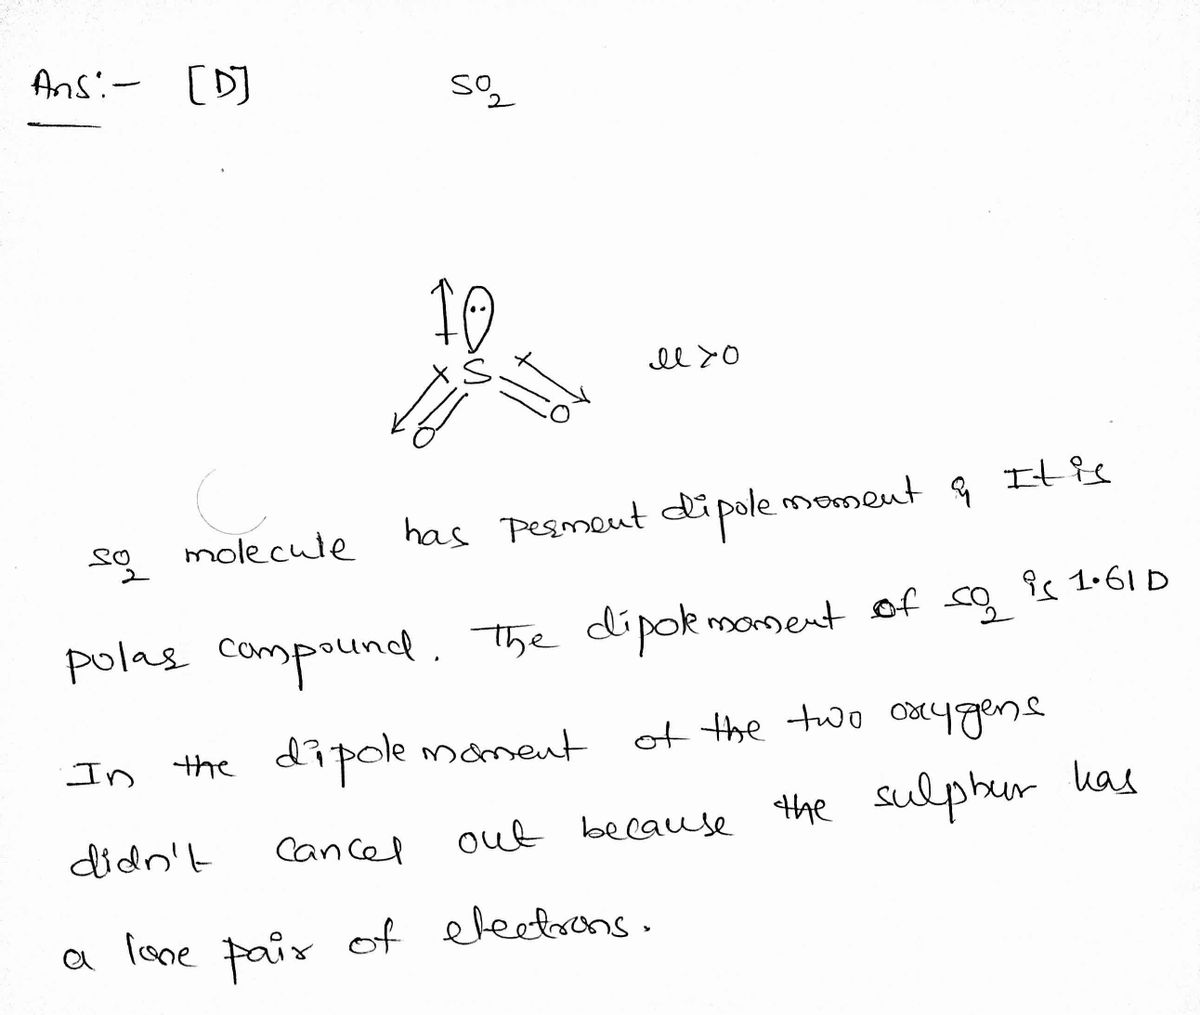 Ans:- [D] SO2
S
O O
μ>0
SO2 molecule has Perment dipole moment & It is
polar compound. The dipole moment of SO2 is 1.61 D
In the dipole moment of the two oxygens
didn't cancel out because the sulphur has
a lone pair of electrons.